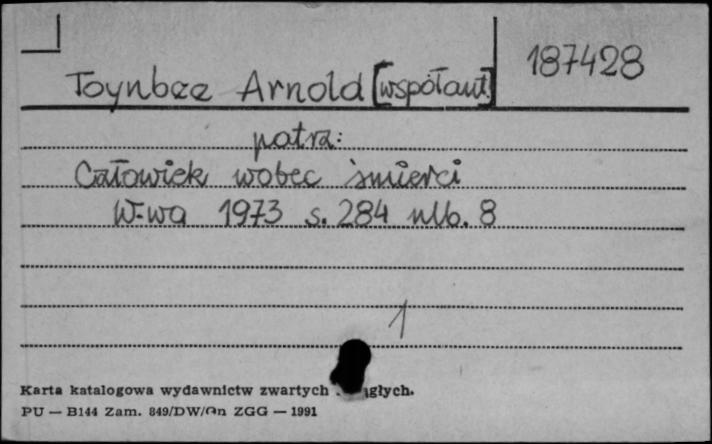 187428
Toynbee Arnold [współaut.]
patrz:
Człowiek wobec śmierci
W-wa 1973 s. 284 nlb. 8
1
Karta katalogowa wydawnictw zwartych
PU — B144 Zam. 849/DW/ ZGG — 1991